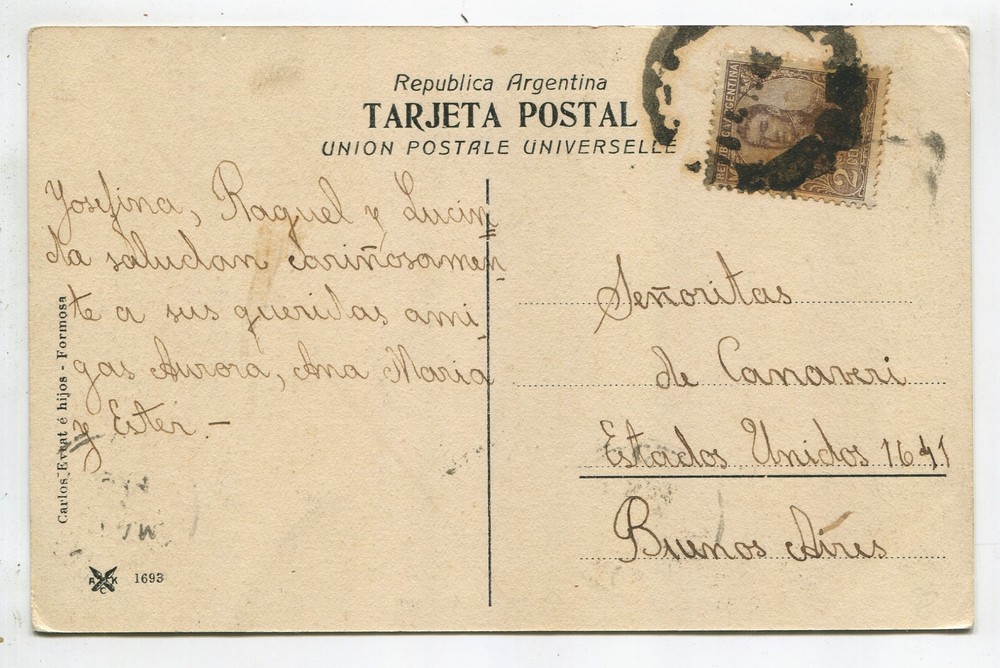 Republica Argentina
TARJETA POSTAL
UNION POSTALE UNIVERSELLE
REPUBLICA ARGENTINA
2
Josefina, Raquel y Lucin
da saludan cariñosamen
te a sus queridas ami
gas Aurora, Ana Maria
y Ester.-
Señoritas
de Canaveri
Estados Unidos 1641
Buenos Aires
Carlos Evrat é hijos - Formosa
R K
C
1693